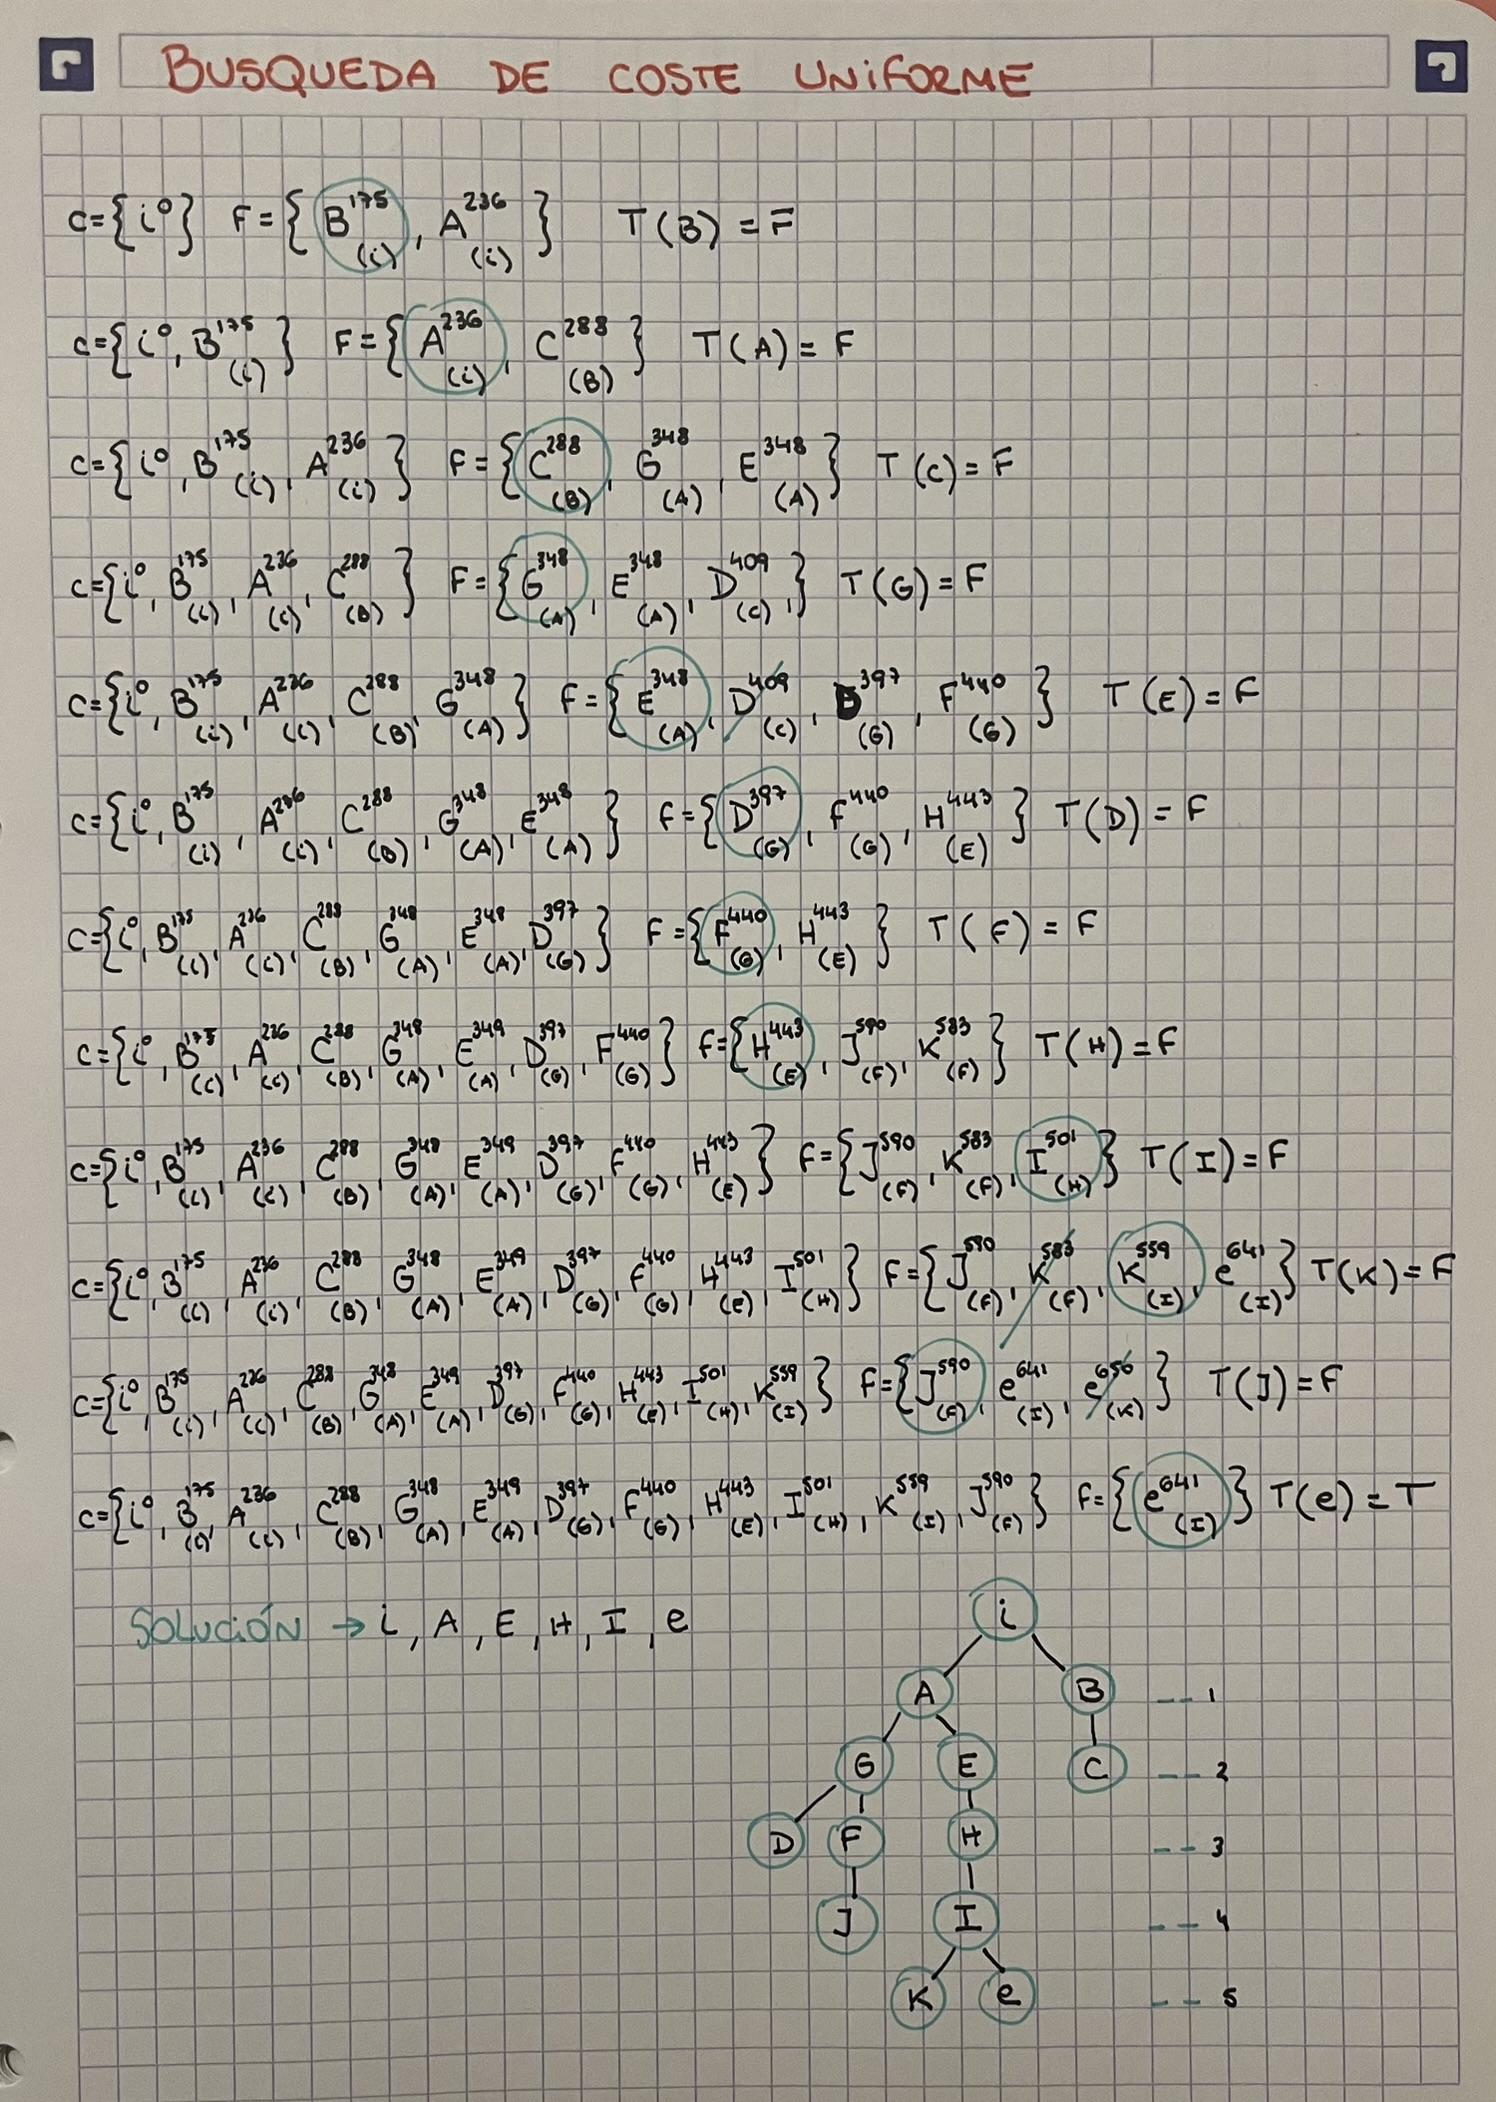 BUSQUEDA DE COSTE UNIFORME
C={i⁰} F={B¹⁷⁵(i), A²³⁶(i)} T(B)=F
C={i⁰, B¹⁷⁵(i)} F={A²³⁶(i), C²⁸⁸(B)} T(A)=F
C={i⁰, B¹⁷⁵(i), A²³⁶(i)} F={C²⁸⁸(B), G³⁴⁸(A), E³⁴⁸(A)} T(C)=F
C={i⁰, B¹⁷⁵(i), A²³⁶(i), C²⁸⁸(B)} F={G³⁴⁸(A), E³⁴⁸(A), D⁴⁰⁹(C),} T(G)=F
C={i⁰, B¹⁷⁵(i), A²³⁶(i), C²⁸⁸(B), G³⁴⁸(A)} F={E³⁴⁸(A), D⁴⁰⁹(C), D³⁹⁷(G), F⁴⁴⁰(G)} T(E)=F
C={i⁰, B¹⁷⁵(i), A²³⁶(i), C²⁸⁸(B), G³⁴⁸(A), E³⁴⁸(A)} F={D³⁹⁷(G), F⁴⁴⁰(G), H⁴⁴³(E)} T(D)=F
C={i⁰, B¹⁷⁵(i), A²³⁶(i), C²⁸⁸(B), G³⁴⁸(A), E³⁴⁸(A), D³⁹⁷(G)} F={F⁴⁴⁰(G), H⁴⁴³(E)} T(F)=F
C={i⁰, B¹⁷⁵(i), A²³⁶(i), C²⁸⁸(B), G³⁴⁸(A), E³⁴⁹(A), D³⁹⁷(G), F⁴⁴⁰(G)} F={H⁴⁴³(E), J⁵⁹⁰(F), K⁵⁸³(F)} T(H)=F
C={i⁰, B¹⁷⁵(i), A²³⁶(i), C²⁸⁸(B), G³⁴⁸(A), E³⁴⁹(A), D³⁹⁷(G), F⁴⁴⁰(G), H⁴⁴³(E)} F={J⁵⁹⁰(F), K⁵⁸³(F), I⁵⁰¹(H)} T(I)=F
C={i⁰, B¹⁷⁵(i), A²³⁶(i), C²⁸⁸(B), G³⁴⁸(A), E³⁴⁹(A), D³⁹⁷(G), F⁴⁴⁰(G), H⁴⁴³(E), I⁵⁰¹(H)} F={J⁵⁹⁰(F), K⁵⁸³(F), K⁵⁵⁹(I), e⁶⁴¹(I)} T(K)=F
C={i⁰, B¹⁷⁵(i), A²³⁶(i), C²⁸⁸(B), G³⁴⁸(A), E³⁴⁹(A), D³⁹⁷(G), F⁴⁴⁰(G), H⁴⁴³(E), I⁵⁰¹(H), K⁵⁵⁹(I)} F={J⁵⁹⁰(F), e⁶⁴¹(I), e⁶⁵⁶(K)} T(J)=F
C={i⁰, B¹⁷⁵(i), A²³⁶(i), C²⁸⁸(B), G³⁴⁸(A), E³⁴⁹(A), D³⁹⁷(G), F⁴⁴⁰(G), H⁴⁴³(E), I⁵⁰¹(H), K⁵⁵⁹(I), J⁵⁹⁰(F)} F={e⁶⁴¹(I)} T(e)=T
SOLUCIÓN → i, A, E, H, I, e
i
A B -- 1
G E C -- 2
D F H -- 3
J I -- 4
K e -- 5